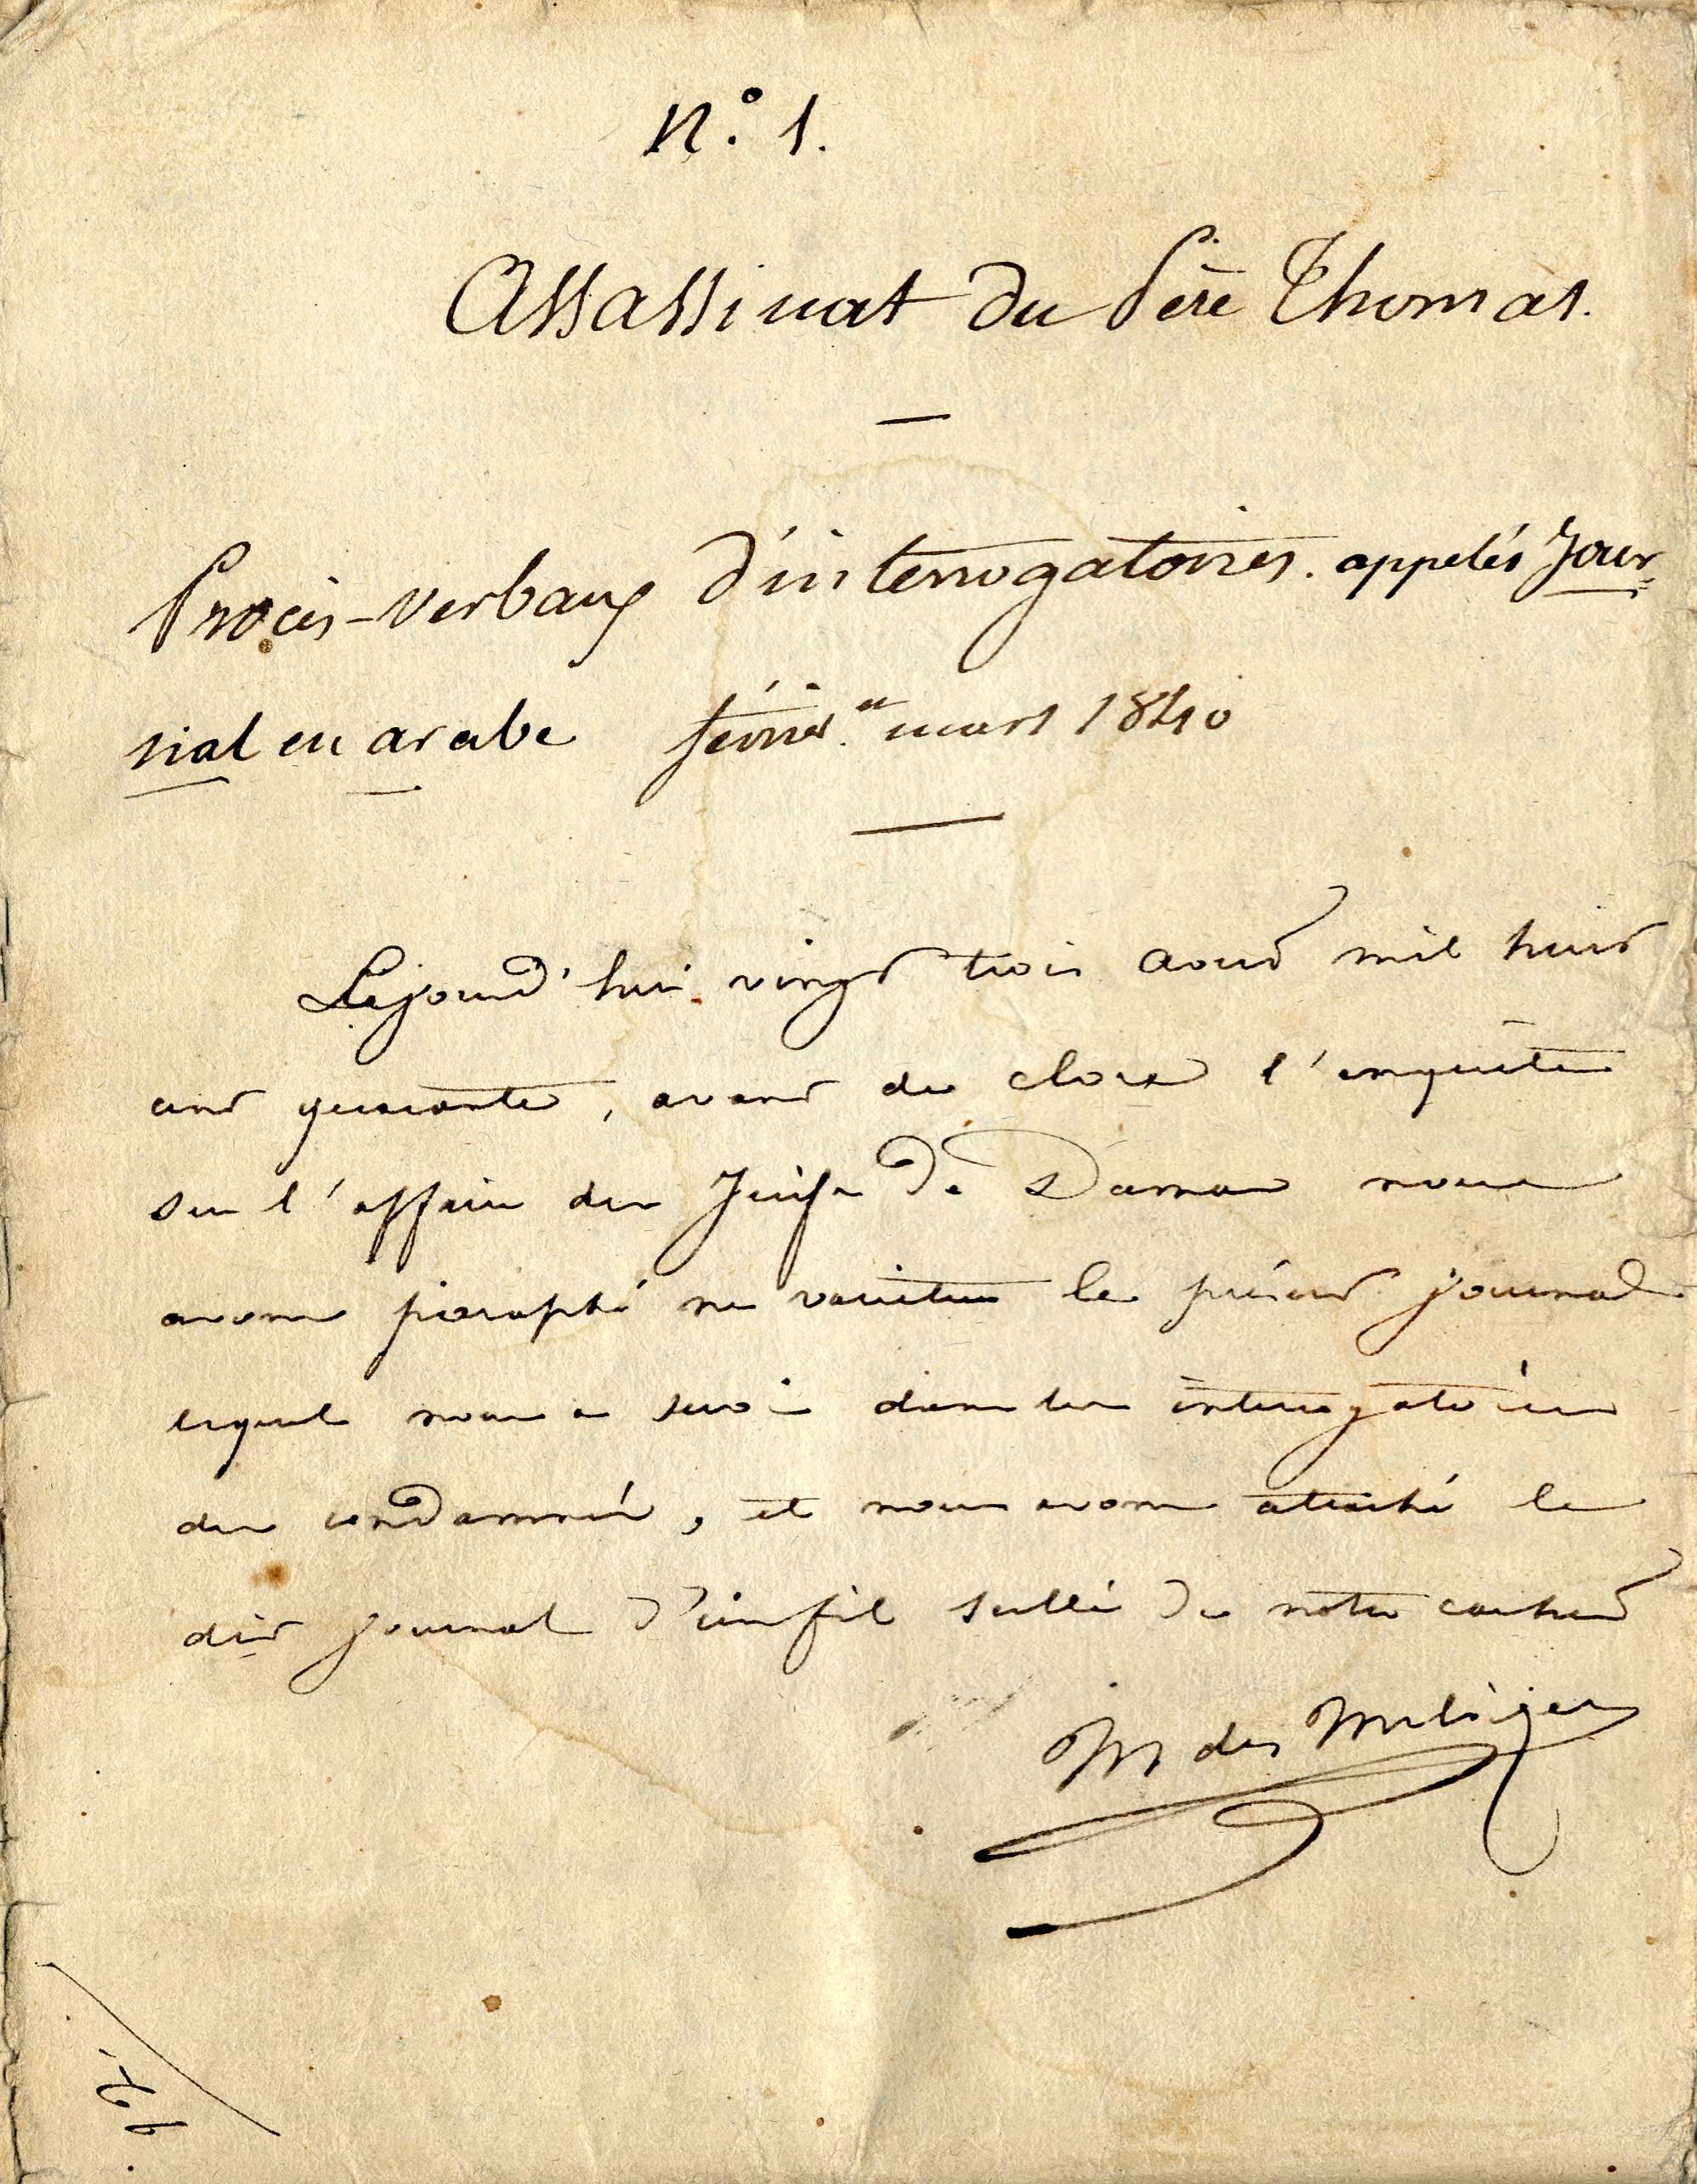 N.° 1.
Assassinat du Père Thomas.
Procès-verbaux d'interrogatoires. appelés Jour=
nal en arabe février et mars 1840
Cejourd'hui vingt trois août mil huit
cent quarante, avant de clore l'enquête
sur l'affaire des Juifs de Damas nous
avons paraphé ne varietur le présent journal
lequel nous a servi dans les interrogatoires
des condamnés, et nous avons attaché le
dit journal d'un fil scellé de notre cachet
M des Meloizes